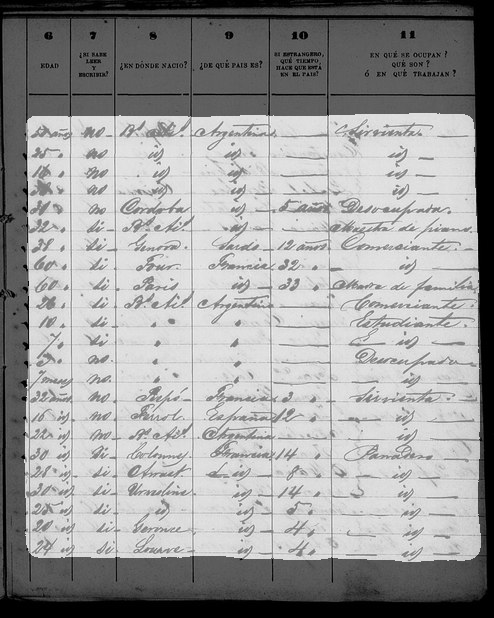 6 7 8 9 10 11
EDAD ¿SI SABE LEER Y ESCRIBIR? ¿EN DÓNDE NACIÓ? ¿DE QUÉ PAIS ES? SI ESTRANGERO, QUÉ TIEMPO HACE QUE ESTÁ EN EL PAIS? EN QUÉ SE OCUPAN? QUÉ SON? Ó EN QUÉ TRABAJAN?
años no Bs Ais Argentina — Sirvienta
25 " no id id — id —
no id id — id —
no id id — id —
30 " no Cordoba id — 5 años Desocupada
32 " si Bs Ais id — — Maestra de piano
38 " si Genova Sardo 12 años Comerciante
60 " si Francia 32 " — id
60 " si Paris id — 33 " Madre de familia
26 " si Bs Ais Argentina — Comerciante
10 " si " " — Estudiante
7 " si " " — id
no " " — Desocupado
7 meses no " " — id
32 años no Francia 3 " Sirvienta
16 id no Ferrol España 12 " — id
22 id no Bs Ais Argentina — id
30 id si Francia 14 " Panadero
28 id si id 8 " id
30 id si id — 14 " id
25 id si id id — 5 " id
20 id si id — 4 " id
24 id si id — 4 " id